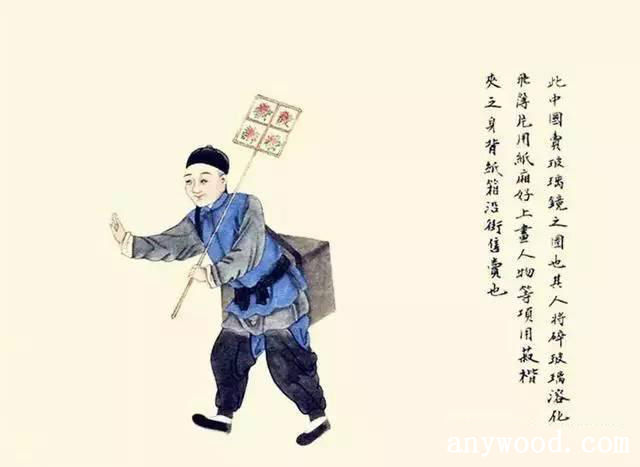 此中國賣玻璃鏡之圖也其人將碎玻璃溶化
飛薄片用紙廂好上畫人物等項用菽楷
夾之身背紙箱沿街售賣也
www.anywood.com